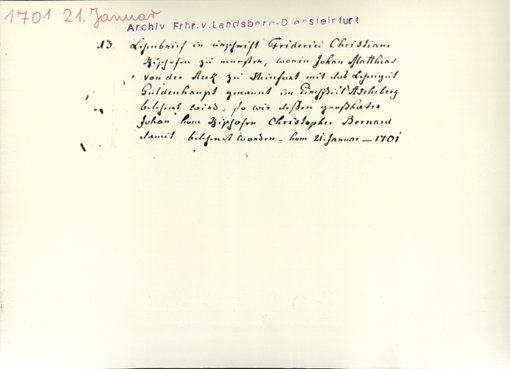 1701 21. Januar
Archiv Frhr. v. Landsberg-D ensteinfurt
N3. Lehnbrieff in urschrifft Friderici Christiani
Bischofen zu münster, worin Johan Matthias
von der Reck zu Steinfurt mit das Lehngut
Guldenhaupt genannt im Kirchspiel Ascheberg
belehnt wird, so wie deßen großvater
Johan vom Bischofen Christopher Bernard
damit belehnt worden - vom 21. Januar - 1701